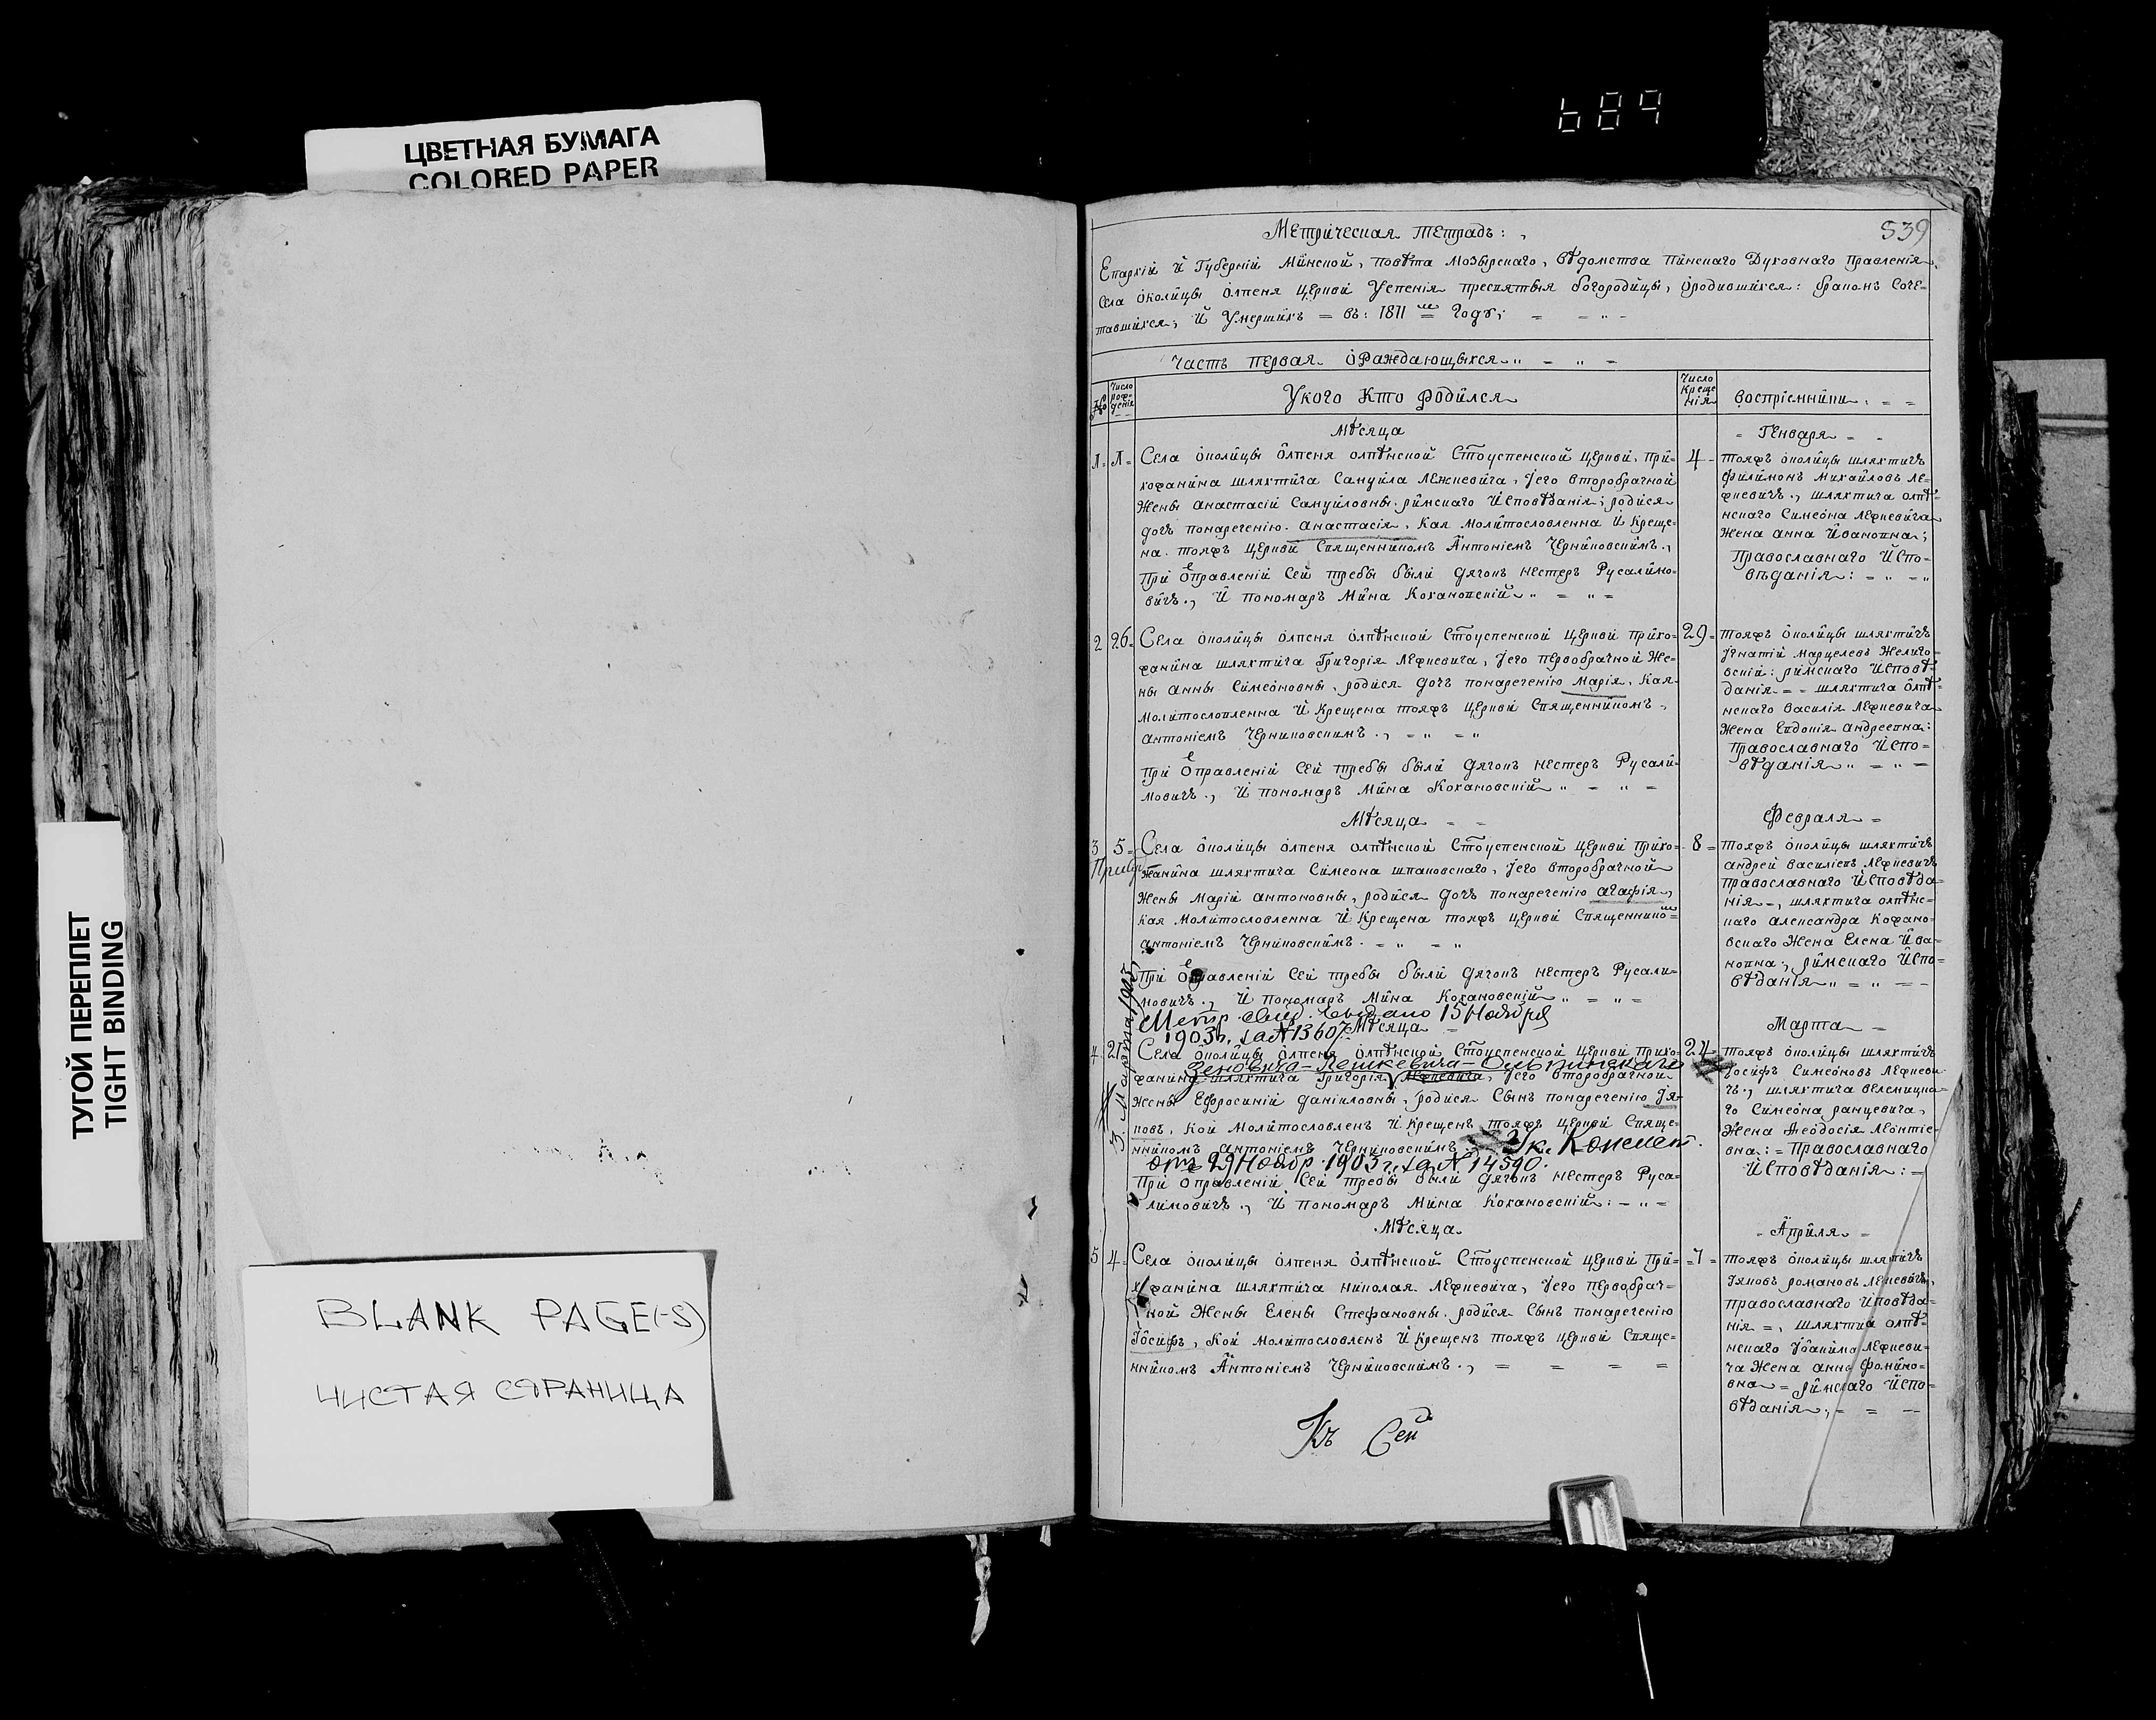 689
ЦВЕТНАЯ БУМАГА
COLORED PAPER
ТУГОЙ ПЕРЕПЛЕТ
TIGHT BINDING
BLANK PAGE(-S)
ЧИСТАЯ СТРАНИЦА
539
Метрическая тетрадь:
Епархіи и Губерніи Минской, повѣта Мозырскаго, вѣдомства пинскаго Духовнаго Правленія
Села околицы олпеня церкви Успенія пресвятыя богородицы, ородившихся: браком Соче-
тавшихся; и Умершихъ = въ: 1811 м Годѣ;
Часть первая ораждающыхся
№
Число рождения
Укого Кто родился
Число Крещенія
воспріемники:
Мѣсяца
Генваря
Села околицы олпеня олпѣнской Стоуспенской церкви, при-
хожанина шляхтича Самуила Лежневича, іего второбрачной
Жены анастасіи Самуиловны. римскаго исповѣданія; родися
дочь понаречению анастасія, Кая молитвословленна и Креще-
на. тояжъ церкви Священникомъ Антоніемъ Черниковскимъ.,
При отправленіи сей требы были дячокъ нестеръ Русалимо-
вичъ., и пономаръ Мина Кохановскій
4
тояжъ околицы шляхтичъ
филимонъ михайловъ ле-
жневичъ., шляхтича олпѣ-
нскаго Симеона лежневича
Жена анна Ивановна;
Православнаго испо-
вѣданія:
2
26
Села околицы олпеня олпѣнской Стоуспенской церкви прихо-
жанина шляхтича Григорія лежневича, іего первобрачной Же-
ны анны Симеоновны, родися дочь понаречению марія, Кая
молитвословленна и Крещена тояжъ церкви Священникомъ
антоніемъ Черниковскимъ.,
При отправленіи сей требы были дячокъ нестеръ Русали-
мовичъ., и пономаръ Мина Кохановскій
29
тояжъ околицы шляхтичъ
игнатій марцелевъ Желиго-
вскій: римскаго исповѣ-
данія = шляхтича олпѣ-
нскаго василія лежневича
Жена Евдокія андреевна:
Православнаго испо-
вѣданія
Мѣсяца
Февраля
3
5
Села околицы олпеня олпѣнской Стоуспенской церкви прихо-
жанина шляхтича Симеона шпаковскаго, іего второбрачной
Жены маріи антоновны, родися дочь понаречению агафія,
кая молитвословленна и Крещена тояжъ церкви Священнико-
антоніемъ Черниковскимъ.
При отправленіи сей требы были дячокъ нестеръ Русали-
мовичъ., и пономаръ Мина Кохановскій
8
тояжъ околицы шляхтичъ
андрей василіевъ лежневичъ
православнаго исповѣда-
нія =, шляхтича олпѣнс-
каго александра Кохано-
вскаго Жена Елена Ива-
новна:, римскаго испо-
вѣданія
Метр. свид. выдано 15 Ноября
1903 г. за № 13607.
Мѣсяца
Марта
4
21
Села околицы олпеня олпѣнской Стоуспенской церкви прихо-
жанина шляхтича Григорія лежневича, іего второбрачной
Жены Ефросиніи даніиловны, родися Сынъ понаречению Ія-
ковъ, кой молитвословленъ и Крещенъ тояжъ церкви Свяще-
нникомъ антоніемъ Черниковскимъ
Ук. Консист.
отъ 29 Ноябр. 1903 г. за № 14590.
При отправленіи сей требы были дячокъ нестеръ Руса-
лимовичъ., и пономаръ Мина Кохановскій:
24
тояжъ околицы шляхтичъ
іосифъ Симеоновъ лежневи-
чъ., шляхтича велемицка-
го Симеона ранцевича,
Жена Феодосія леонтіе-
вна: = Православнаго
исповѣданія:
Мѣсяца
Априля
5
4
Села околицы олпеня олпѣнской Стоуспенской церкви при-
хожанина шляхтича николая лежневича, іего первобрач-
ной Жены Елены Стефановны. родися Сынъ понаречению
іосифъ, кой молитвословленъ и Крещенъ тояжъ церкви Свяще-
нникомъ Антоніемъ Черниковскимъ.,
7
тояжъ околицы шляхтичъ
Іяковъ романовъ лежневичъ,
православнаго исповѣда-
нія =, шляхтича олпѣ-
нскаго
ча Жена анна
вна = римскаго испо-
вѣданія;
Къ Сей